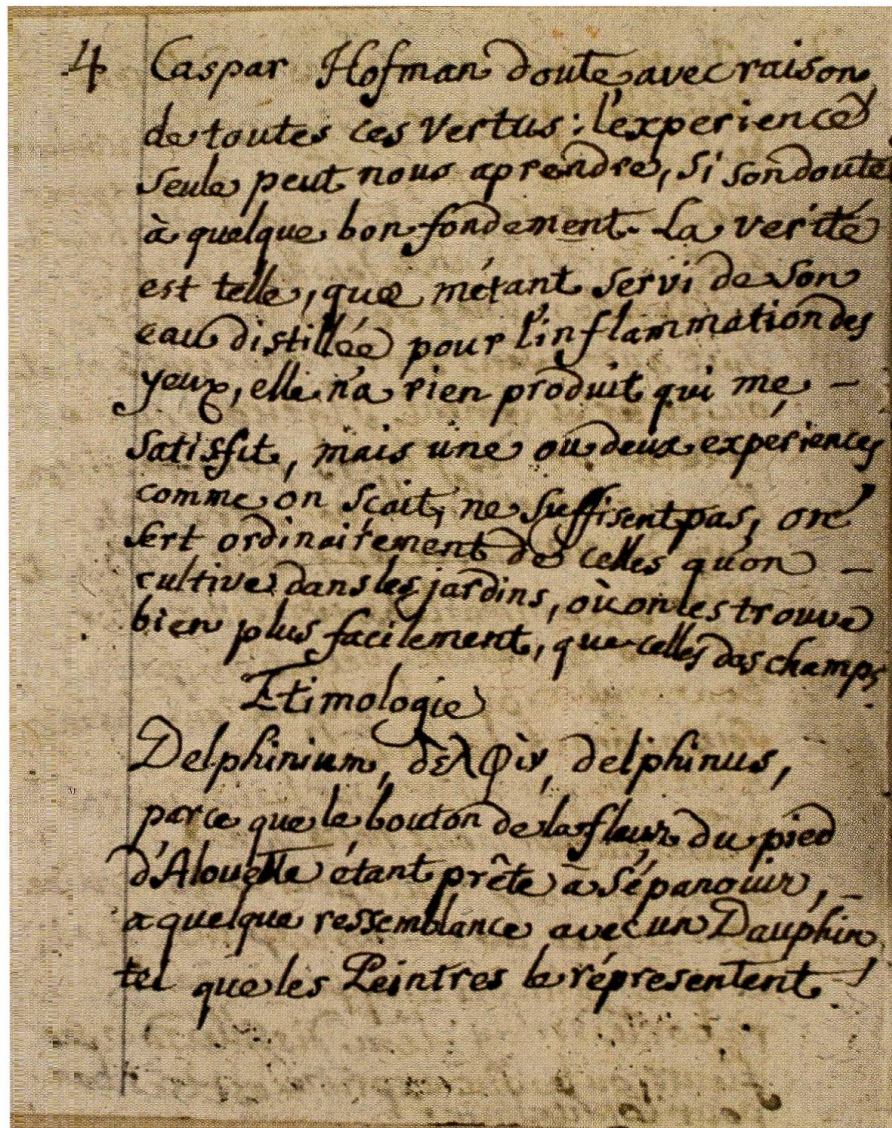 4 Caspar Hofman doute avec raison
de toutes ces vertus : l'experience
seule peut nous aprendre, si son doute
à quelque bon fondement. La verité
est telle, que m'étant servi de son
eau distillée pour l'inflammation des
yeux, elle n'a rien produit qui me –
satisfit, mais une ou deux experiences
comme on scait, ne suffisent pas, on
sert ordinairement de celles qu'on –
cultive dans les jardins, où on les trouve
bien plus facilement, que celles des champs
Etimologie
Delphinium, δελφὶν, delphinus,
parce que le bouton de la fleur du pied
d'Alouette étant prête à s'épanouir, –
a quelque ressemblance avec un Dauphin
tel que les Peintres le répresentent !